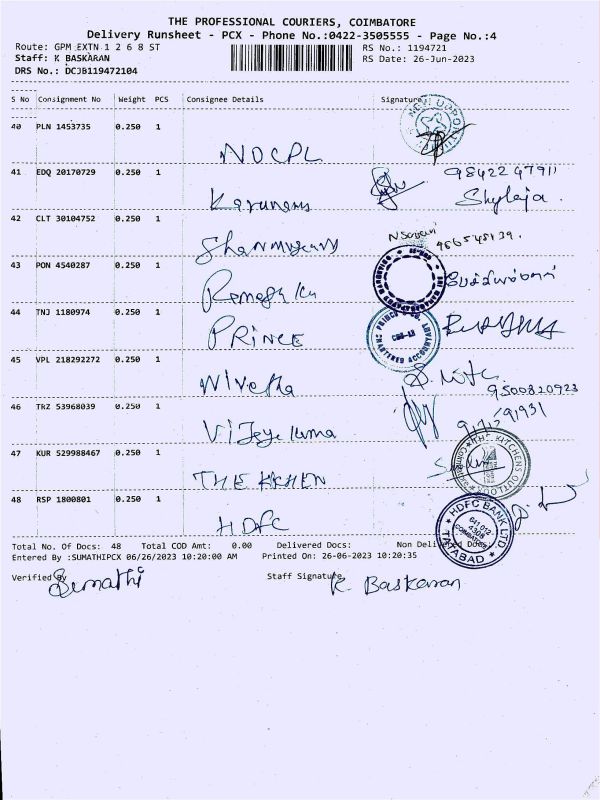 THE PROFESSIONAL COURIERS, COIMBATORE
Delivery Runsheet - PCX - Phone No.:0422-3505555 - Page No.:4
Route: GPM EXTN 1 2 6 8 ST RS No.: 1194721
Staff: K BASKARAN RS Date: 26-Jun-2023
DRS No.: DCJB119472104
S No Consignment No Weight PCS Consignee Details Signature
40 PLN 1453735 0.250 1
NDCPL
41 EDQ 20170729 0.250 1 9842247911
Karunams Shylaja.
42 CLT 30104752 0.250 1
43 PON 4540287 0.250 1
44 TNJ 1180974 0.250 1
PRINCE CHARTERED ACCOUNTANT
45 VPL 218292272 0.250 1
Nivetha 9500820923
46 TRZ 53968039 0.250 1
Vijayakuma
47 KUR 529988467 0.250 1 THE KITCHENS OUTLOOK
48 RSP 1800801 0.250 1
HDFC HDFC BANK LTD TATABAD
Total No. Of Docs: 48 Total COD Amt: 0.00 Delivered Docs: Non Delivered Docs
Entered By :SUMATHIPCX 06/26/2023 10:20:00 AM Printed On: 26-06-2023 10:20:35
Verified By Sumathi Staff Signature K. Baskaran